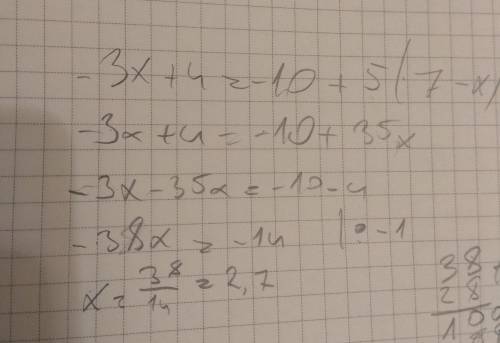 -3x+4=-10+5(7-x)
-3x+4=-10+35x
-3x-35x=-10-4
-38x=-14 |:-1
x=38/14=2,7
38
28
10